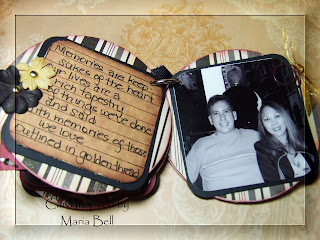 Memories are keep
sakes of the heart
our lives are a
rich tapestry
of things we've done
and said
with memories of those
we love
outlined in golden thread
Maria Bell